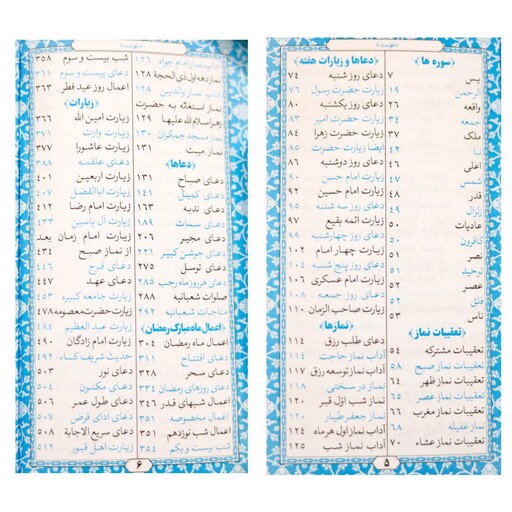 ﴿فهرست﴾
﴿سوره ها﴾
یس ۷
الرحمن ۱۹
واقعه ۲۶
جمعه ۳۴
ملک ۳۷
نبأ ۴۲
اعلی ۴۶
شمس ۴۷
قدر ۴۸
زلزال ۴۹
عادیات ۵۰
کافرون ۵۰
نصر ۵۱
توحید ۵۱
عصر ۵۲
فلق ۵۲
ناس ۵۳
﴿تعقیبات نماز﴾
تعقیبات مشترکه ۵۴
تعقیبات نماز صبح ۵۸
تعقیبات نماز ظهر ۶۴
تعقیبات نماز عصر ۶۵
تعقیبات نماز مغرب ۶۶
نماز غفیله ۶۸
تعقیبات نماز عشاء ۷۰
﴿دعاها و زیارات هفته﴾
دعای روز شنبه ۷۴
زیارت حضرت رسول ۷۶
دعای روز یکشنبه ۸۰
زیارت حضرت امیر ۸۳
زیارت حضرت زهرا ۸۴
ایضا زیارت حضرت ۸۵
دعای روز دوشنبه ۸۶
زیارت امام حسن ۹۰
زیارت امام حسین ۹۲
دعای روز سه شنبه ۹۵
زیارت ائمه بقیع ۹۷
دعای روز چهارشنبه ۹۹
زیارت چهار امام ۱۰۲
دعای روز پنج شنبه ۱۰۴
زیارت امام عسکری ۱۰۶
دعای روز جمعه ۱۰۸
زیارت صاحب الزمان ۱۱۰
﴿نمازها﴾
دعای طلب رزق ۱۱۴
آداب نماز حاجت ۱۱۴
آداب نماز توسعه رزق ۱۱۷
نماز در سختی ۱۱۸
نماز شب اوّل قبر ۱۲۰
نماز جعفر طیار ۱۲۰
نماز اول هرماه ۱۲۴
آداب نماز شب ۱۲۵
۵
﴿فهرست﴾
نماز امام جواد ۱۲۶
نماز دهه اول ذی الحجة ۱۲۸
آداب نماز والدین ۱۲۸
نماز استغاثه به حضرت
زهرا سلام الله علیها ۱۲۹
نماز مسجد جمکران ۱۳۰
نماز میت ۱۳۱
﴿دعاها﴾
دعای صباح ۱۳۱
دعای کمیل ۱۴۱
دعای ندبه ۱۶۳
دعای سمات ۱۸۹
دعای مجیر ۲۰۶
دعای جوشن کبیر ۲۲۱
دعای توسل ۲۷۵
دعای هرروز ماه رجب ۲۸۵
صلوات شعبانیه ۲۸۸
مناجات شعبانیه ۲۹۲
﴿اعمال ماه مبارک رمضان﴾
اعمال ماه رمضان ۳۰۴
دعای افتتاح ۳۱۱
دعای سحر ۳۲۸
دعای روزهای رمضان ۳۳۴
اعمال شبهای قدر ۳۴۶
اعمال مخصوصه ۳۵۱
اعمال شب نوزدهم ۳۵۱
شب بیست و یکم ۳۵۴
شب بیست و سوم ۳۵۸
دعای بیست و سوم ۳۶۱
اعمال روز عید فطر ۳۶۳
﴿زیارات﴾
زیارت امین الله ۳۶۶
زیارت وارث ۳۷۱
زیارت عاشورا ۳۷۷
دعای علقمه ۳۸۸
زیارت اربعین ۴۰۱
زیارت ابالفضل ۴۰۷
زیارت امام رضا ۴۱۲
زیارت آل یاسین ۴۳۳
زیارت امام زمان بعد
از نماز صبح ۴۳۴
دعای فرج ۴۴۶
دعای عهد ۴۴۷
زیارت جامعه کبیره ۴۵۳
زیارت حضرت معصومه ۴۷۸
زیارت عبد العظیم ۴۸۴
زیارت امام زادگان ۴۹۰
حدیث شریف کساء ۴۹۲
دعای نور ۵۰۳
دعای مکنون ۵۰۴
دعای طول عمر ۵۰۶
دعای ادای قرض ۵۰۷
دعای سریع الاجابة ۵۰۸
زیارت اهل قبور ۵۱۲
۶